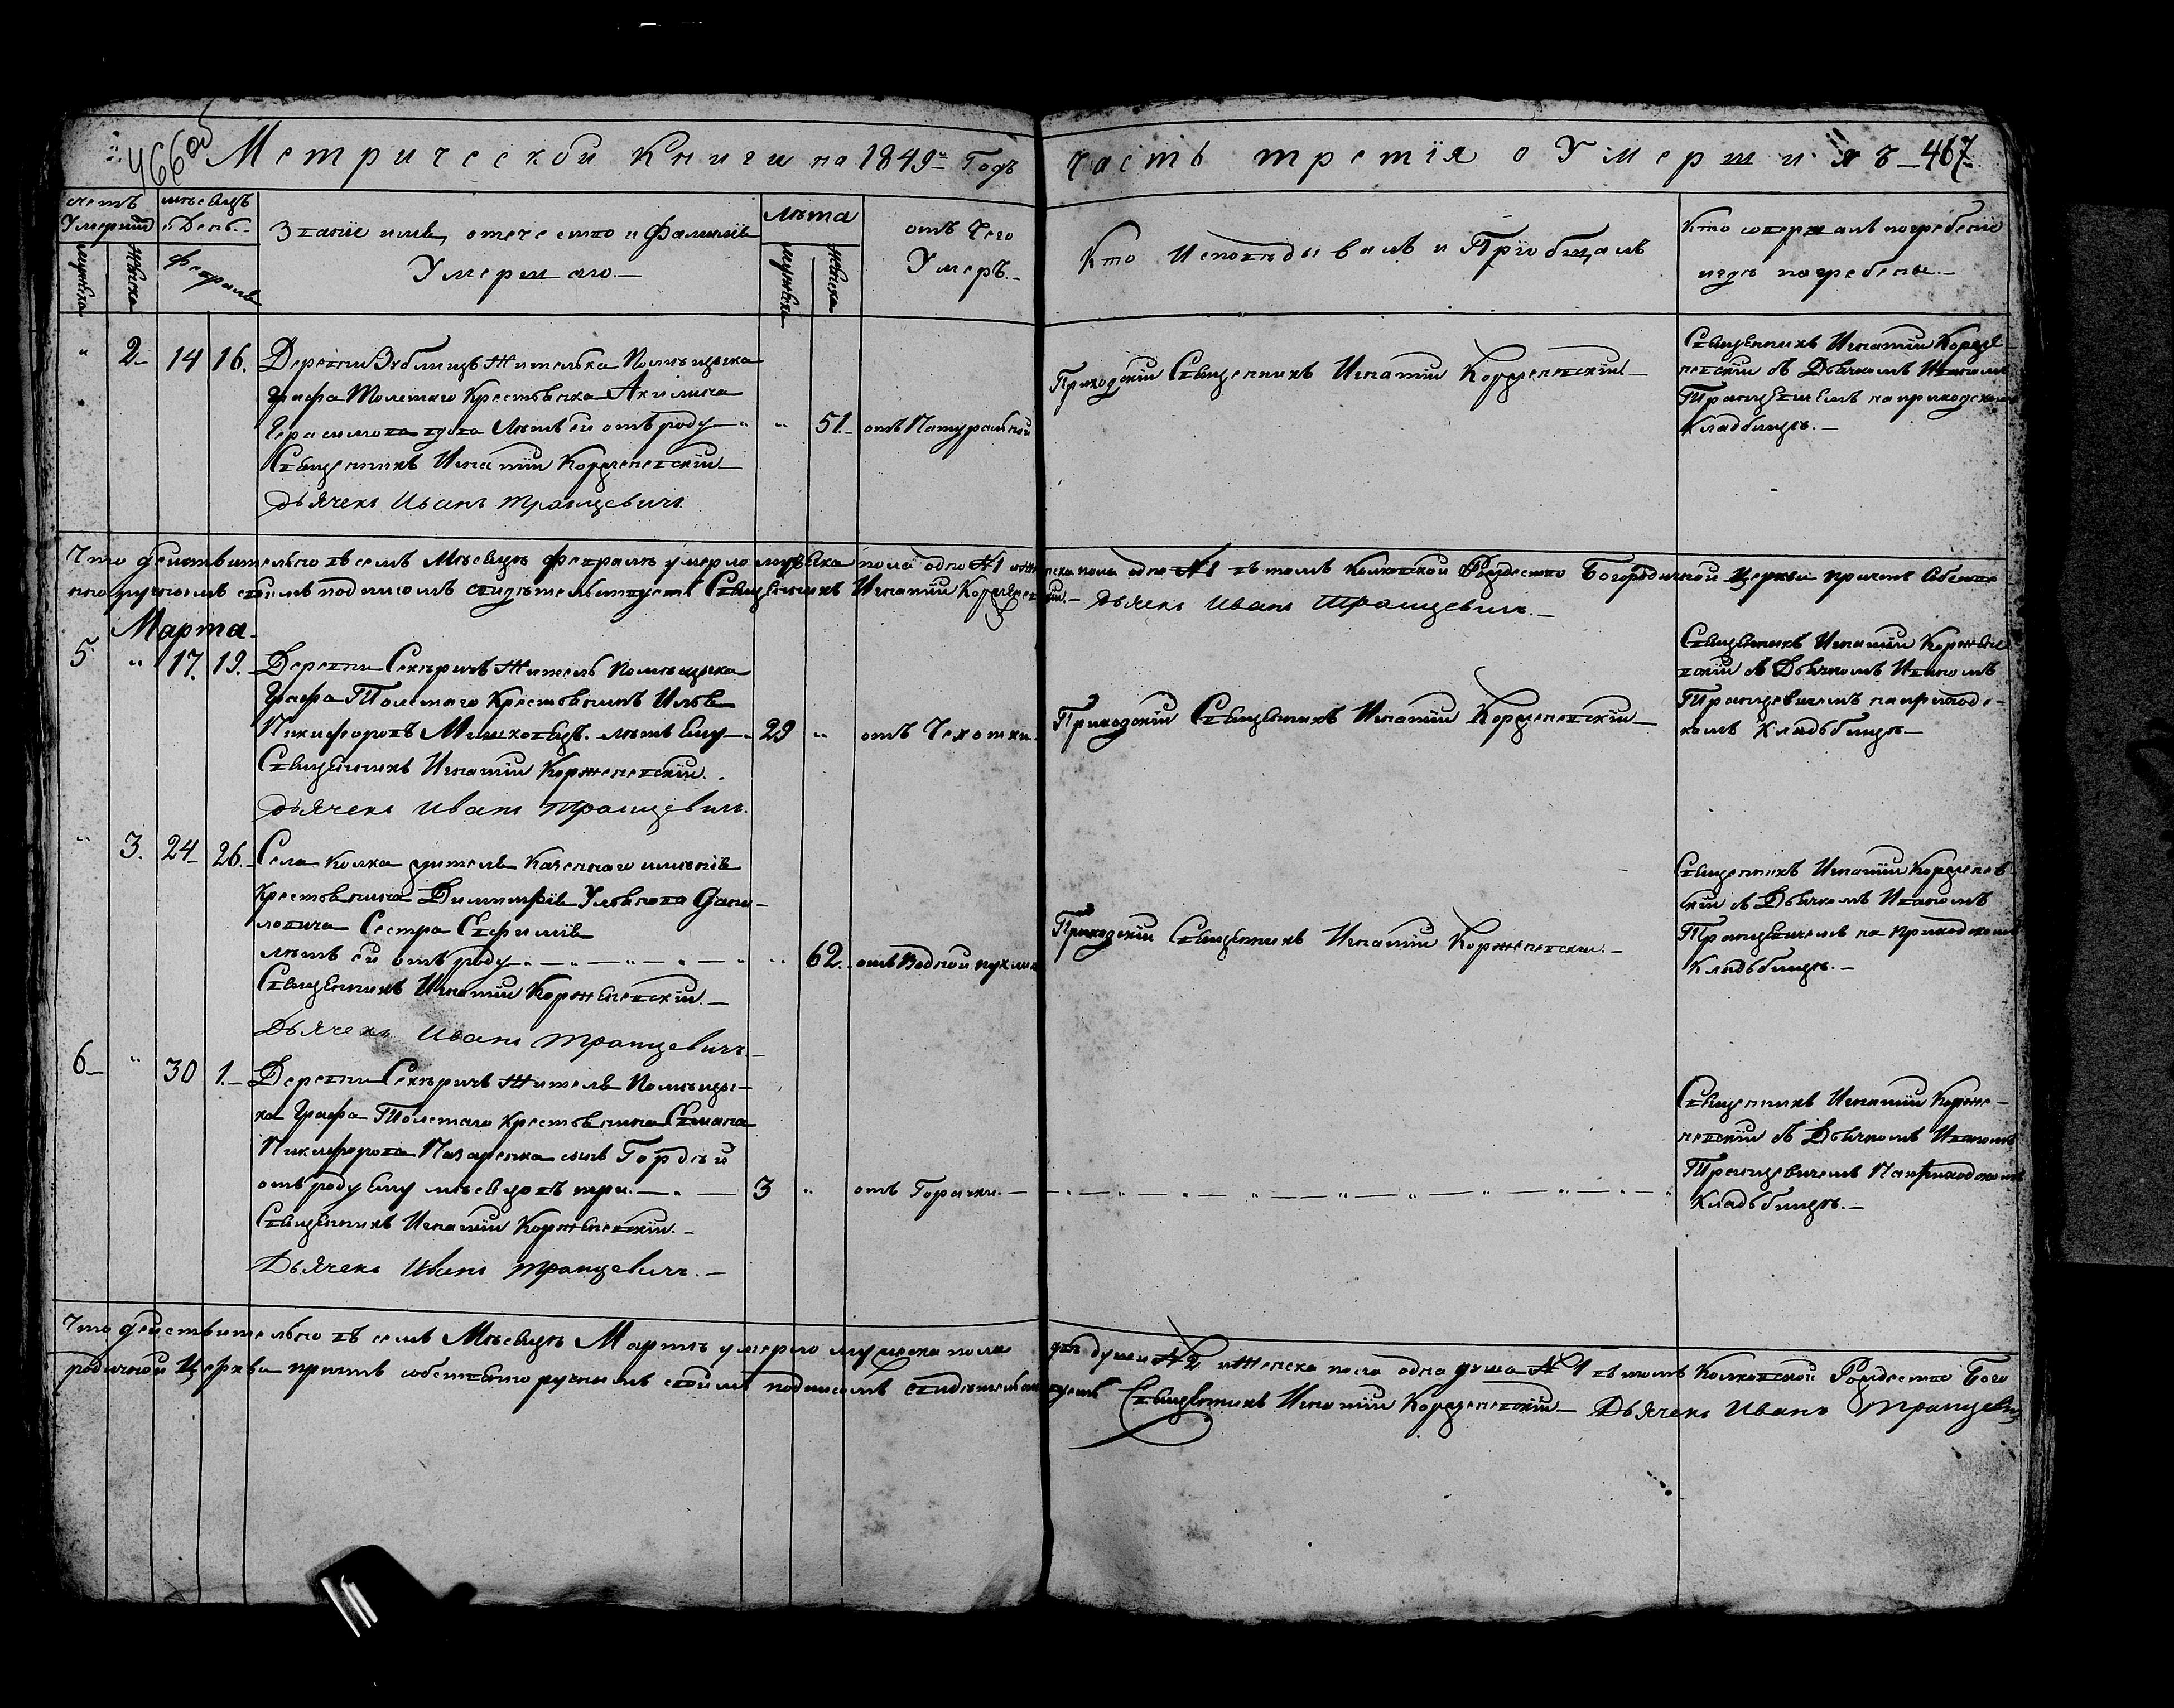 466об Метрической книги на 1849й Годъ часть третія о Умершихъ 467
счетъ Умершихъ
мѣсяцъ и День
Званіе имя, отечество и Фамилія Умершаго.
лѣта
отъ Чего Умеръ.
Кто Исповѣдывалъ и Пріобщалъ
Кто совершалъ погребеніе и гдѣ погребены.
мужеска
женска
Февраль
мужеска
женска
" 2 14 16. Деревни Жителька Помѣщика
Графа Толстаго Крестьянка Акилина
Герасимова вдова лѣтъ ей отъ роду " 51. отъ Натуральной
Священникъ Игнатій Корженевскій
Дьячекъ Иванъ Транцевичъ.
Приходскій Священникъ Игнатій Корженевскій
Священникъ Игнатій Корже-
невскій съ Дьячкомъ Иваномъ
Транцевичемъ на приходскомъ
Кладбищѣ.
Что дѣйствительно въ семъ Мѣсяцѣ Февралѣ умерло мужеска пола одно №1 и женска пола одно №1 въ томъ Колковской Рождество Богородичной Церкви причтъ Собстве-
нноручнымъ своимъ подписомъ свидѣтельствуетъ Священникъ Игнатій Корженевскій. Дьячекъ Иванъ Транцевичъ.
Марта
5 " 17. 19. Деревни Секѣричъ Житель Помѣщика
Графа Толстаго Крестьянинъ Илья
Никифоровъ Мишковецъ. лѣтъ Ему 29 " отъ Чехотки.
Священникъ Игнатій Корженевскій.
Дьячекъ Иванъ Транцевичъ.
Приходскій Священникъ Игнатій Корженевскій
Священникъ Игнатій Коржене-
вскій съ Дьячкомъ Иваномъ
Транцевичемъ на приходс-
комъ Кладьбищѣ
" 3. 24 26. Села Колка жителя Казеннаго имѣнія
Крестьянина Димитрія Ульянова Дани-
ловича Сестра Евфимія
лѣтъ ей отъ роду " 62. отъ Водной пухлин
Священникъ Игнатій Корженевскій.
Дьячекъ Иванъ Транцевичъ.
Приходскій Священникъ Игнатій Корженевскій.
Священникъ Игнатій Корженев-
скій съ Дьячкомъ Иваномъ
Транцевичемъ на Приходскомъ
Кладьбищѣ.
6 " 30 1. Деревни Секѣричъ Жителя Помѣщи-
ка Графа Толстаго крестьянина Семана
Никифорова Назаренка сынъ Гордѣй
отъ роду Ему мѣсяцовъ три. 3 " отъ Горячки.
Священникъ Игнатій Корженевскій.
Дьячекъ Иванъ Транцевичъ.
Священникъ Игнатій Корже-
невскій съ Дьячкомъ Иваномъ
Транцевичемъ На приходскомъ
Кладьбищѣ.
Что дѣйствительно въ семъ Мѣсяцѣ Мартѣ умерло мужеска пола двѣ души №2 и Женска пола одна душа №1 въ томъ Колковской Рождество Бого
родичной Церкви причтъ собственноручнымъ своимъ подписомъ свидѣтельствуетъ Священникъ Игнатій Корженевскій Дьячекъ Иванъ Транцевичъ